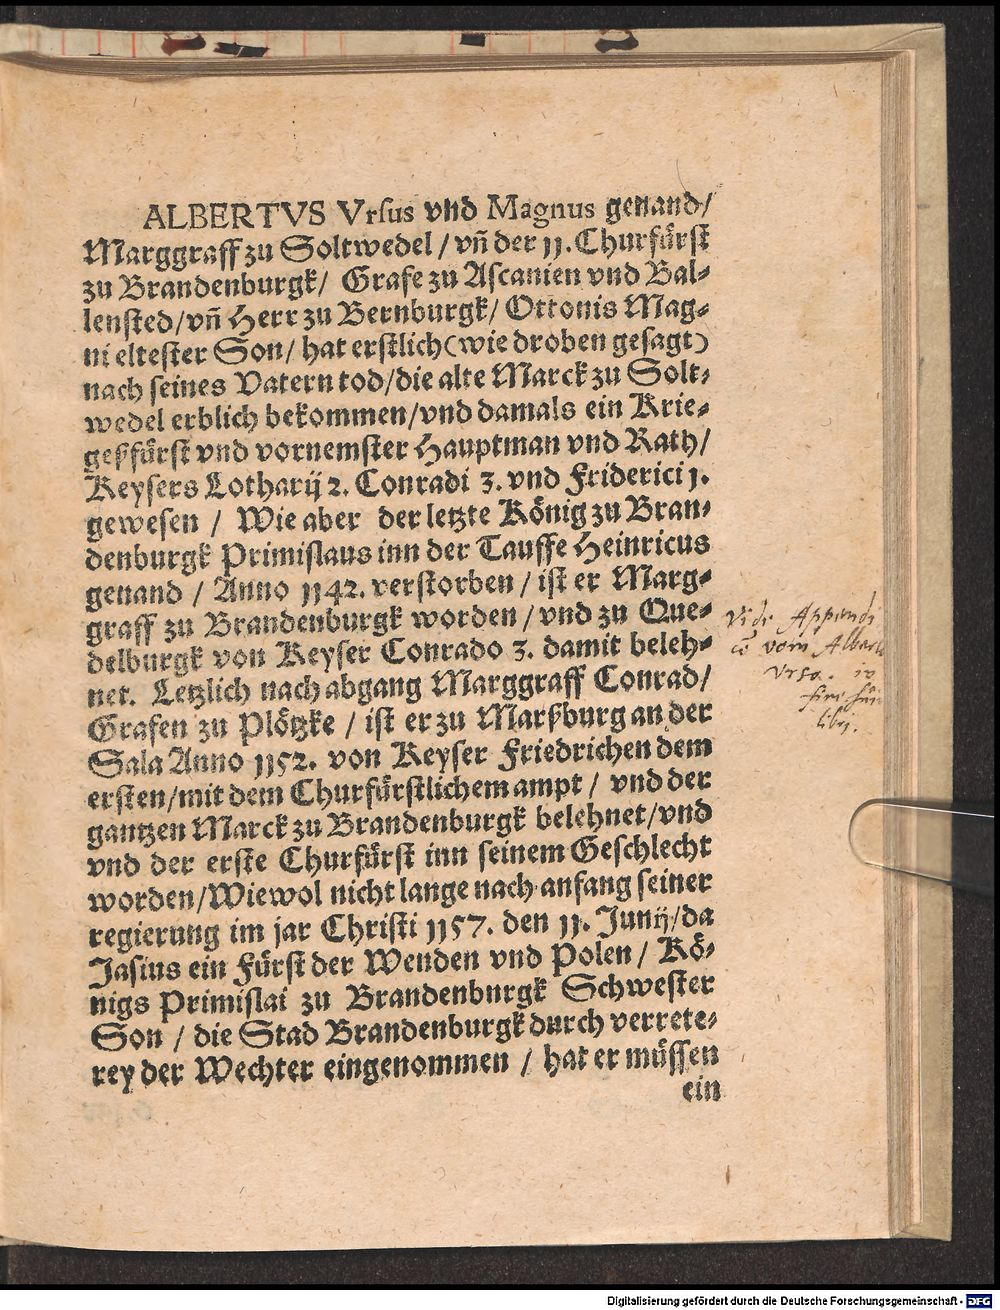 ALBERTVS Vrsus vnd Magnus genand/
Marggraff zu Soltwedel / vñ der 11. Churfürst
zu Brandenburgk/ Grafe zu Ascanien vnd Bal-
lensted/vñ Herr zu Bernburgk/ Ottonis Mag-
ni eltester Son/ hat erstlich (wie droben gesagt)
nach seines Vatern tod/die alte Marck zu Solt-
wedel erblich bekommen/vnd damals ein Krie-
geßfürst vnd vornemster Hauptman vnd Rath/
Keysers Lotharij 2. Conradi 3. vnd Friderici 1.
gewesen / Wie aber der letzte König zu Bran-
denburgk Primislaus inn der Tauffe Heinricus
genand / Anno 1142. verstorben / ist er Marg-
graff zu Brandenburgk worden / vnd zu Que-
delburgk von Keyser Conrado 3. damit beleh-
net. Letzlich nach abgang Marggraff Conrad/
Grafen zu Plötzke / ist er zu Marßburg an der
Sala Anno 1152. von Keyser Friedrichen dem
ersten/mit dem Churfürstlichem ampt / vnd der
gantzen Marck zu Brandenburgk belehnet/vnd
vnd der erste Churfürst inn seinem Geschlecht
worden/Wiewol nicht lange nach anfang seiner
regierung im jar Christi 1157. den 11. Junij/da
Jasius ein Fürst der Wenden vnd Polen / Kö-
nigs Primislai zu Brandenburgk Schwester
Son / die Stad Brandenburgk durch verrete-
rey der Wechter eingenommen / hat er müssen
ein
Vide Appendi
cē vom Alberto
Vrso. in
fine
libri.
Digitalisierung gefördert durch die Deutsche Forschungsgemeinschaft - DFG